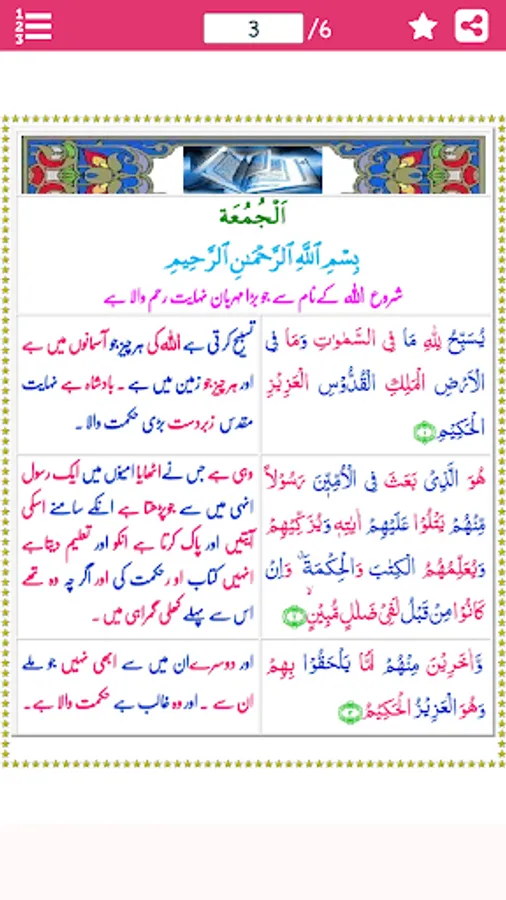 1
2
3
3 /6
اَلْجُمُعَة
بِسْمِ ٱللَّهِ ٱلرَّحْمَٰنِ ٱلرَّحِيمِ
شروع اللہ کے نام سے جو بڑا مہربان نہایت رحم والا ہے
يُسَبِّحُ لِلّٰهِ مَا فِى السَّمٰوٰتِ وَمَا فِى
الْاَرْضِ الْمَلِكِ الْقُدُّوْسِ الْعَزِيْزِ
الْحَكِيْمِ ۱
تسبیح کرتی ہے اللہ کی ہر چیز جو آسمانوں میں ہے
اور ہر چیز جو زمین میں ہے ۔ بادشاہ ہے نہایت
مقدس زبردست بڑی حکمت والا ۔
هُوَ الَّذِىْ بَعَثَ فِى الْاُمِّيّٖنَ رَسُوْلًا
مِّنْهُمْ يَتْلُوْا عَلَيْهِمْ اٰيٰتِهٖ وَيُزَكِّيْهِمْ
وَيُعَلِّمُهُمُ الْكِتٰبَ وَالْحِكْمَةَ ۗ وَاِنْ
كَانُوْا مِنْ قَبْلُ لَفِىْ ضَلٰلٍ مُّبِيْنٍ ۙ ۲
وہی ہے جس نے اٹھایا امیّوں میں ایک رسول
انہی میں سے جو پڑھتا ہے انکے سامنے اسکی
آیتیں اور پاک کرتا ہے انکو اور تعلیم دیتا ہے
انہیں کتاب او ر حکمت کی اور اگر چہ وہ تھے
اس سے پہلے کھلی گمراہی میں ۔
وَّاٰخَرِيْنَ مِنْهُمْ لَمَّا يَلْحَقُوْا بِهِمْ
وَهُوَ الْعَزِيْزُ الْحَكِيْمُ ۳
اور دوسرے ان میں سے ابھی نہیں جو ملے
ان سے ۔ اور وہ غالب ہے حکمت والا ہے۔